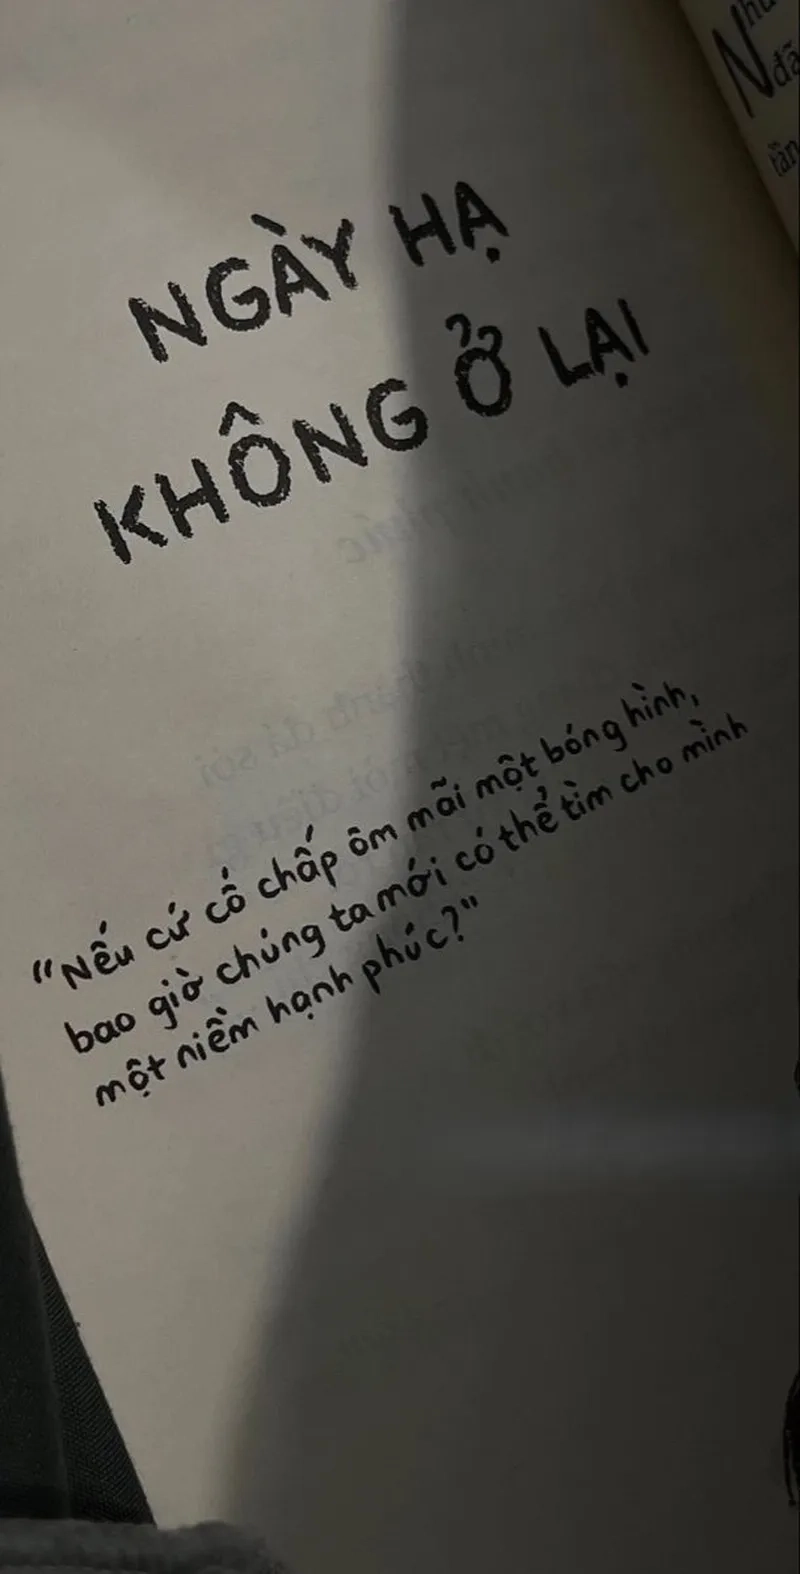 NGÀY HẠ
KHÔNG Ở LẠI
"Nếu cứ cố chấp ôm mãi một bóng hình,
bao giờ chúng ta mới có thể tìm cho mình
một niềm hạnh phúc?"